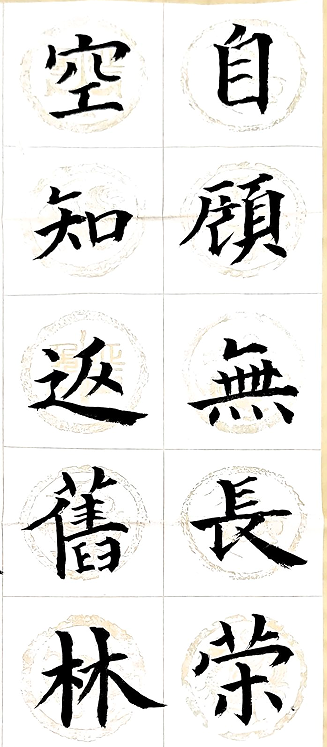 自顧無長策
空知返舊林